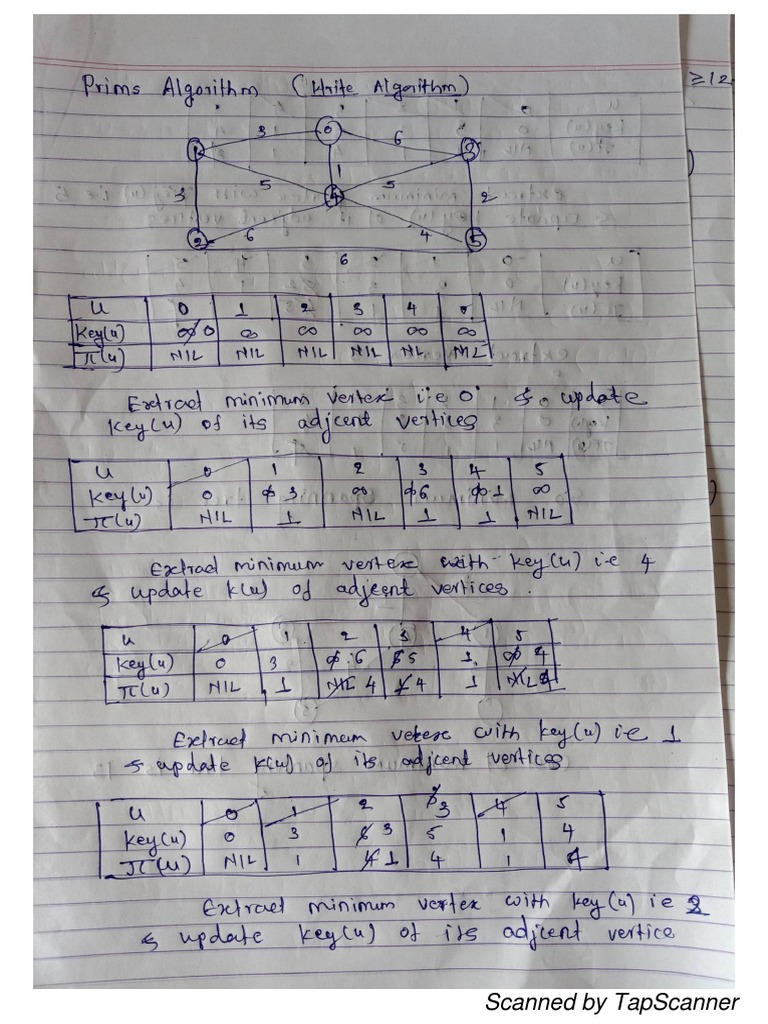 Prims Algorithm (Write Algorithm)
≥12
0
3
6
1
3
1
5
4
5
3
2
2
6
4
5
6
u 0 1 2 3 4
Key(u) ∞ 0 ∞ ∞ ∞ ∞ ∞
π(u) NIL NIL NIL NIL NL NIL
Extract minimum vertex i.e 0 & update
Key(u) of its adjcent vertices
u 0 1 2 3 4 5
Key(u) 0 3 ∞ 6 1 ∞
π(u) NIL 1 NIL 1 1 NIL
Extract minimum vertex with key(u) i.e 4
& update k(u) of adjcent vertices.
u 0 1 2 3 4 5
Key(u) 0 3 6 5 1 4
π(u) NIL 1 NIL 4 4 1 NIL 4
Extract minimum vetex with key(u) i.e 1
& update k(u) of its adjcent vertices
u 0 1 2 3 4 5
Key(u) 0 3 6 3 5 1 4
π(u) NIL 1 4 1 4 1 4
Extract minimum vertex with key(u) i.e 2
& update key(u) of its adjcent vertice
Scanned by TapScanner